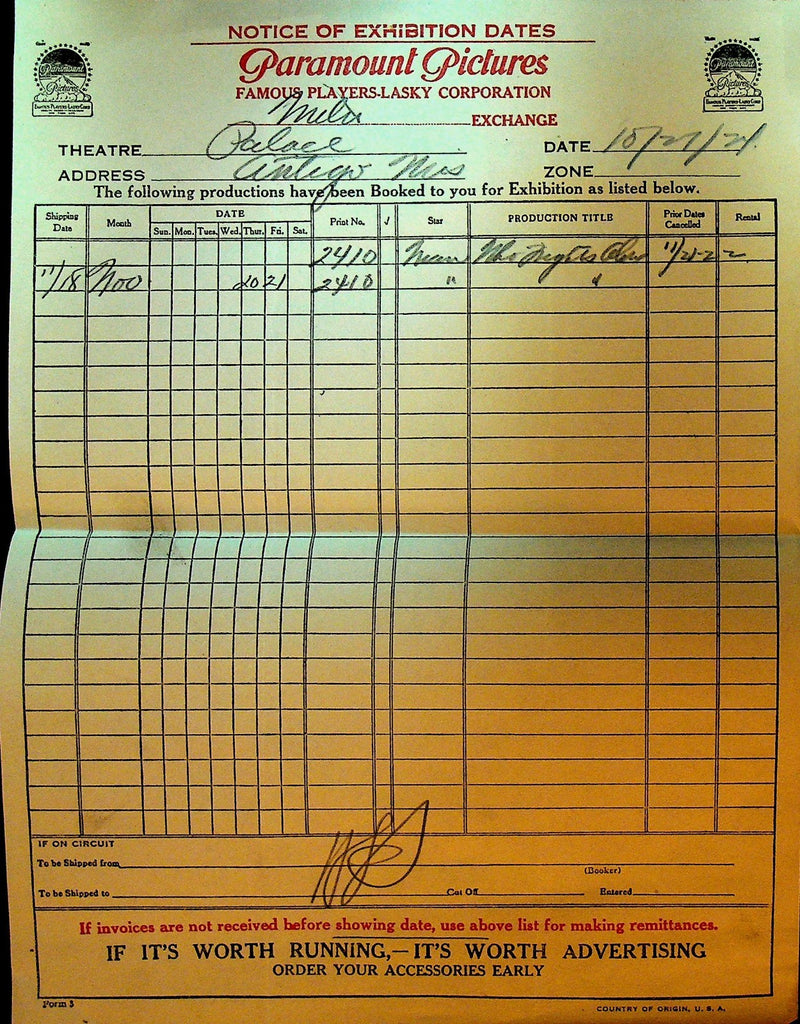 NOTICE OF EXHIBITION DATES
Paramount Pictures
FAMOUS PLAYERS-LASKY CORPORATION
EXCHANGE
THEATRE Palace DATE 10/27/24
ADDRESS Antigo Wis ZONE
The following productions have been Booked to you for Exhibition as listed below.
Shipping Date Month DATE Print No. √ Star PRODUCTION TITLE Prior Dates Cancelled Rental
Sun. Mon. Tues. Wed. Thur. Fri. Sat.
2410
11/18 Nov 20 21 2410 " "
IF ON CIRCUIT
To be Shipped from
(Booker)
To be Shipped to Cut Off Entered
If invoices are not received before showing date, use above list for making remittances.
IF IT'S WORTH RUNNING,—IT'S WORTH ADVERTISING
ORDER YOUR ACCESSORIES EARLY
Form 3
COUNTRY OF ORIGIN, U. S. A.